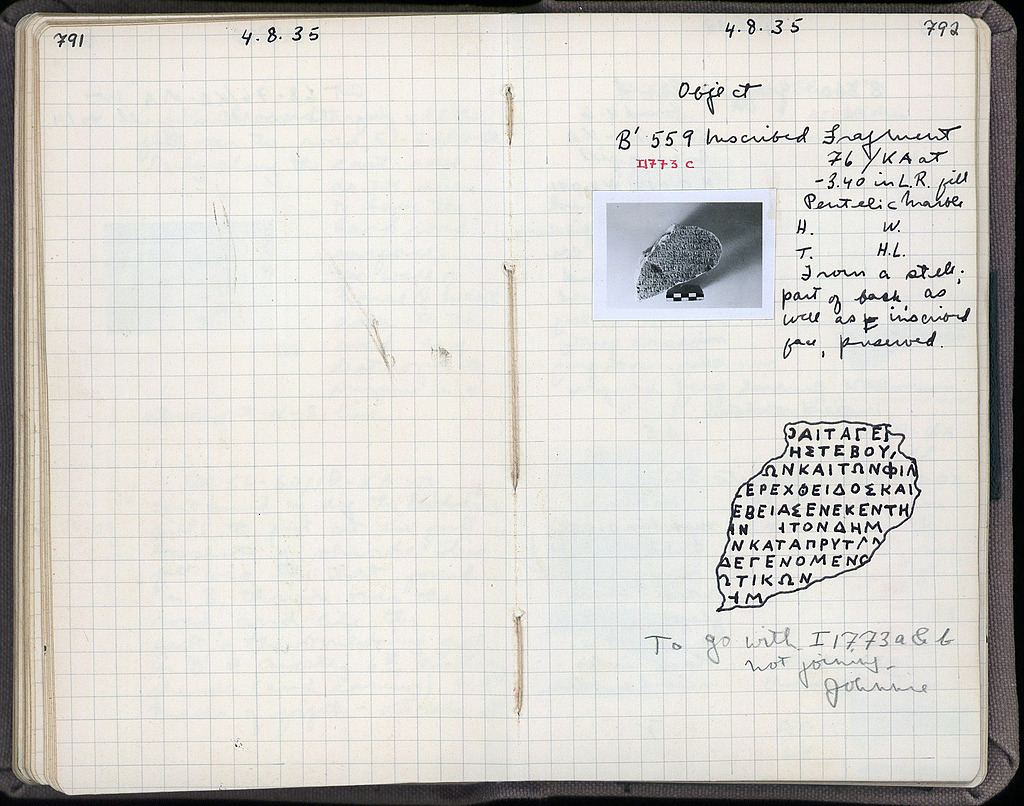 791
4.8.35
4.8.35
792
Object
B' 559 Inscribed Fragment
I1773 c
76/KA at
-3.40 in L.R. fill
Pentelic Marble
H. W.
T. H.L.
From a stele;
part of back, as
well as inscribed
face, preserved.
ΑΙΤΑΓΕ
ΗΣΤΕΒΟΥ
ΩΝΚΑΙΤΩΝΦΙΛ
ΕΡΕΧΘΕΙΔΟΣΚΑΙ
ΕΒΕΙΑΣΕΝΕΚΕΝΤΗ
Ν ΤΟΝΔΗΜ
ΝΚΑΤΑΠΡΥΤ
ΔΕΓΕΝΟΜΕΝΟ
ΩΤΙΚΩΝ
Μ
To go with I1773 a & b
not joining.
Johnnie